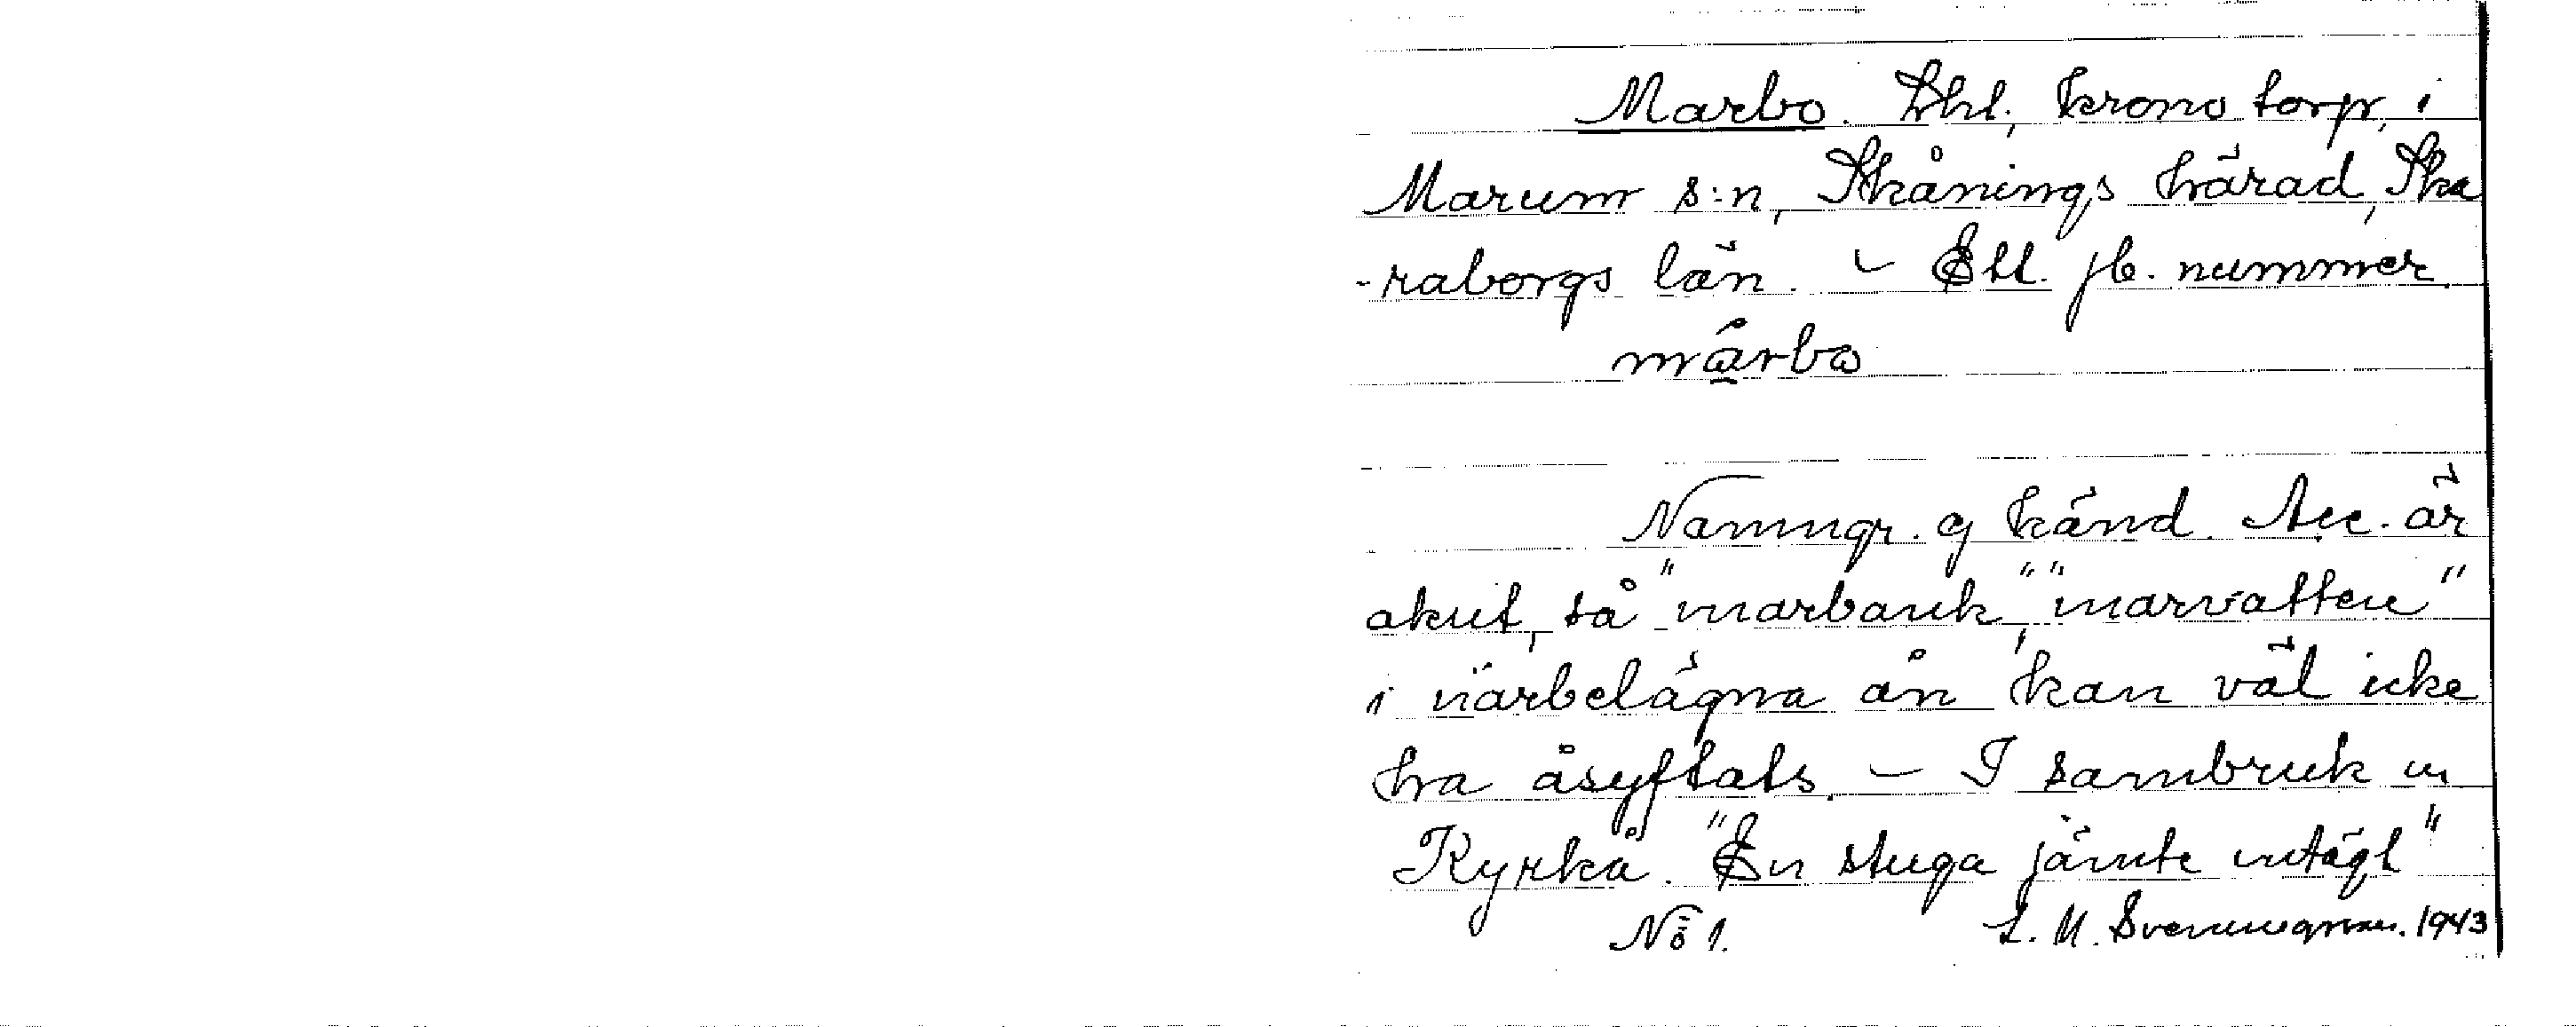 Marbo. Lht, krono torp, i
Marum s:n, Skånings härad, Ska
-raborgs län. – Ett jb. nummer.
Namngr. ej känd. Acc. är
akut, så "marbank", "marvatten"
i närbelägna ån kan väl icke
ha åsyftats. – I sambruk m
Kyrkå. "En stuga jämte utägl"
No 1. 1943